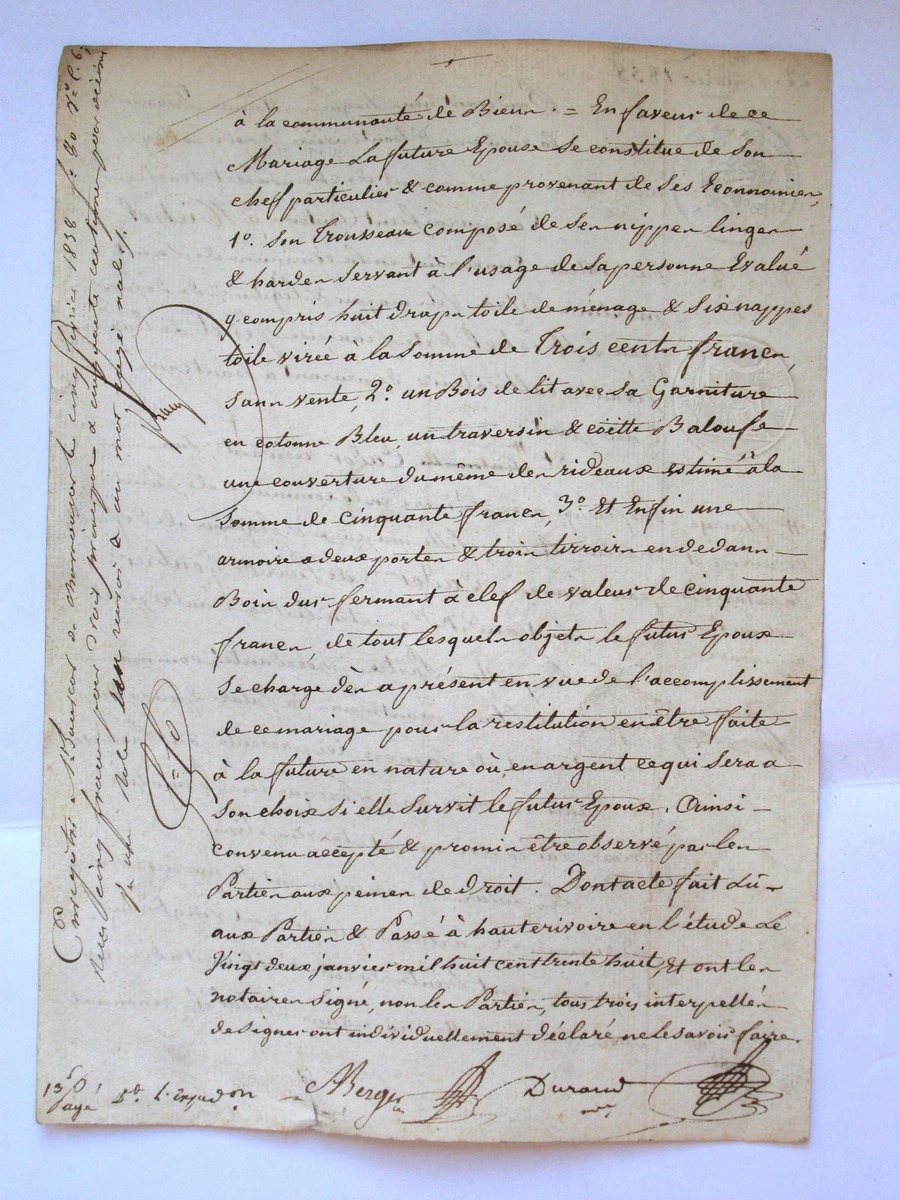 à la communauté de Biens. = En faveur de ce
Mariage La future Epouse Se constitue de Son
chef particulier & comme provenant de Ses Economies,
1°. Son Trousseau composé de Ses nippes linges
& hardes Servant à l'usage de Sa personne Evalué
y compris huit draps toile de ménage & Six nappes
toile virée à la Somme de Trois cents francs,
Sans vente, 2°. un Bois de lit avec Sa Garniture
en cotonne Bleu, un traversin & coëtte Baloufe
une couverture du même des rideaux estimé à la
Somme de cinquante francs, 3°. Et Enfin une
armoire a deux portes & trois tirroirs en dedans
Bois dur fermant à clef de valeur de cinquante
francs, de tout lesquels objets le futur Epoux
Se charge dès a présent en vue de l'accomplissement
de ce mariage pour la restitution en être faite
à la future en nature où en argent ce qui Sera a
Son choix Si elle Survit le futur Epoux. Ainsi
convenu accepté & promis être observé par les
Parties aux peines de droit. Dont acte fait Lû
aux Parties & Passé à hauterivoire en l'étude Le
Vingt deux janvier mil huit cent trente huit, Et ont les
notaires Signé, non les Parties, tous trois interpellés
de Signer ont individuellement déclaré ne le Savoir faire.
13f 01
Payé
Berger
Durand
Enregistré à St Laurent de Chamousset le cinq février 1838 f° 30 V° C. 6,
Reçu cinq francs pour droit principal & cinquante centimes pour décime
un renvoi & un mot rayé nul.